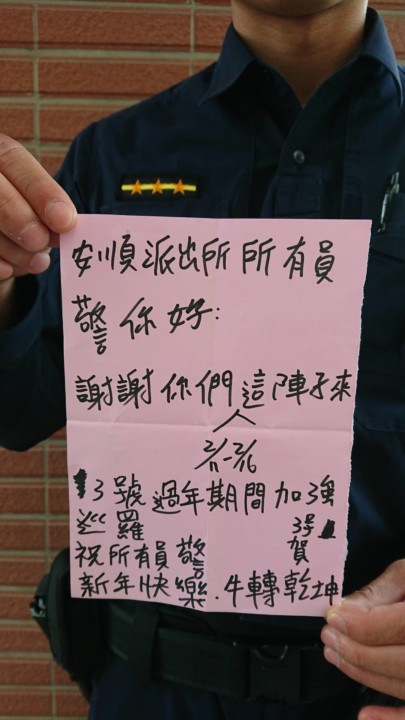 安順派出所所有員
警你好:
謝謝你們這陣子來
2/11-2/16
3號過年期間加強
巡邏
祝所有員警 賀
新年快樂.牛轉乾坤